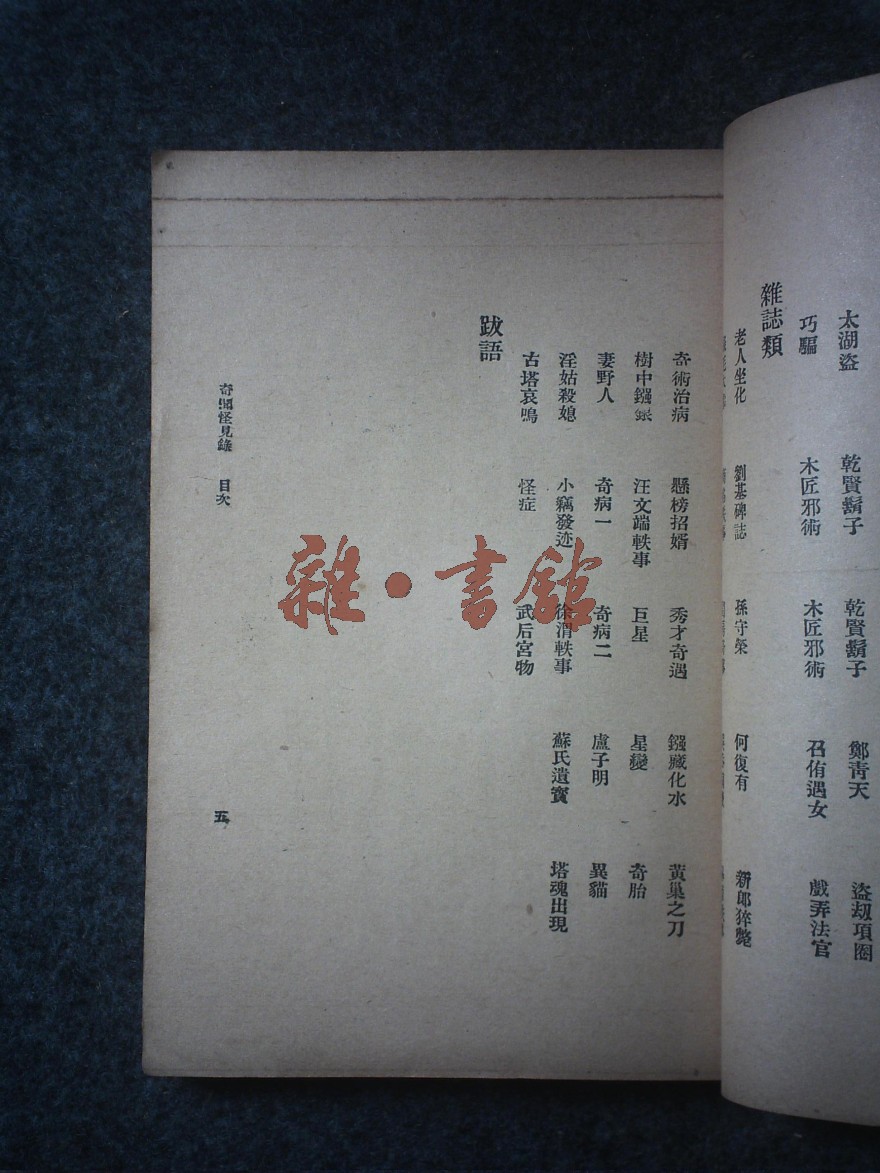 太湖盜 乾賢鬚子 乾賢鬚子 鄭靑天 盜刼項圈
巧騙 木匠邪術 木匠邪術 召侑遇女 戲弄法官
雜誌類
老人坐化 劉基碑誌 孫守榮 何復有 新郎猝斃
奇術治病 懸榜招婿 秀才奇遇 鏹藏化水 黃巢之刀
樹中鏹銀 汪文端軼事 巨星 星變 奇胎
妻野人 奇病一 奇病二 盧子明 異貓
淫姑殺媳 小竊發迹 徐渭軼事 蘇氏遺寶 塔魂出現
古塔哀鳴 怪症 武后宮物
跋語
奇聞怪見錄 目次 五
雜·書館